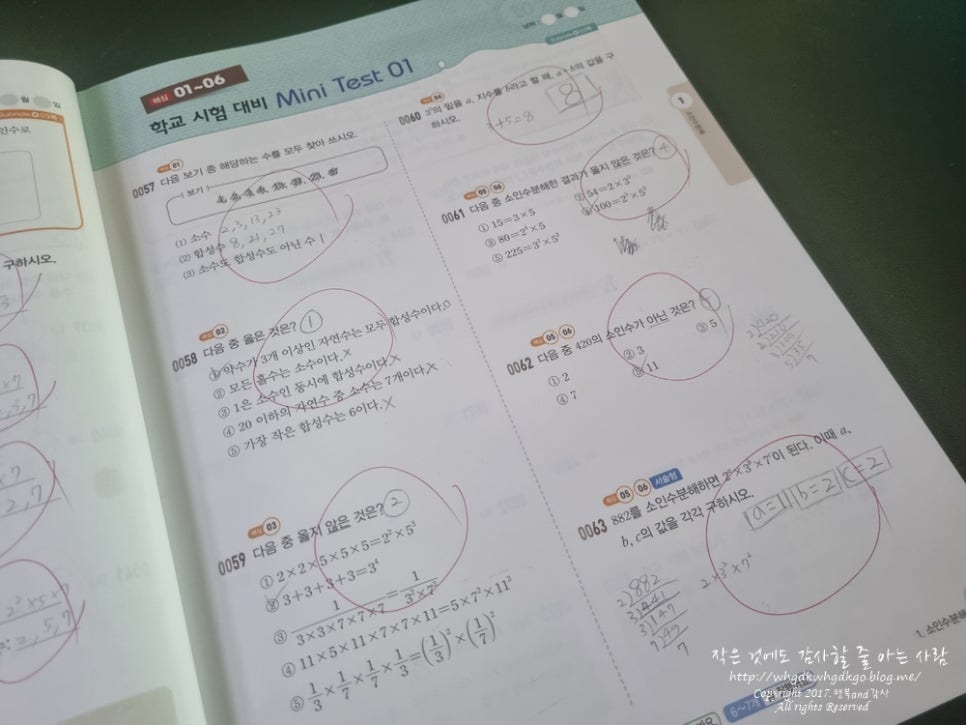 월 일
핵심 01~06
학교 시험 대비 Mini Test 01
날짜 월 일
구하시오.
핵심 01
0057 다음 보기 중 해당하는 수를 모두 찾아 쓰시오.
보기
(1) 소수 2, 3, 13, 23
(2) 합성수 8, 21, 27
(3) 소수도 합성수도 아닌 수 1
핵심 02
0058 다음 중 옳은 것은? ①
① 약수가 3개 이상인 자연수는 모두 합성수이다. O
② 모든 홀수는 소수이다. X
③ 1은 소수인 동시에 합성수이다. X
④ 20 이하의 자연수 중 소수는 7개이다. X
⑤ 가장 작은 합성수는 6이다. X
핵심 03
0059 다음 중 옳지 않은 것은? ②
① 2×2×5×5×5=2²×5³
② 3+3+3+3=3⁴
③ 1/(3×3×7×7×7)=1/(3²×7³)
④ 11×5×11×7×7×11=5×7²×11³
⑤ 1/3×1/7×1/7×1/3=(1/3)²×(1/7)²
핵심 04
0060 3⁵의 밑을 a, 지수를 b라고 할 때, a+b의 값을 구
하시오.
3+5=8
8
핵심 05 06
0061 다음 중 소인수분해한 결과가 옳지 않은 것은? ④
① 15=3×5
② 54=2×3³
③ 80=2⁴×5
④ 100=2⁴×5²
⑤ 225=3²×5²
핵심 05 06
0062 다음 중 420의 소인수가 아닌 것은?
① 2
② 3
③ 5
④ 7
⑤ 11
핵심 05 06 서술형
0063 882를 소인수분해하면 2ᵃ×3ᵇ×7ᶜ이 된다. 이때 a,
b, c의 값을 각각 구하시오.
a=1 b=2 c=2
2)882
3)441
3)147
7)49
7
2×3²×7²
1
소인수분해
1. 소인수분해
작은 것에도 감사할 줄 아는 사람
http://whgdkwhgdkgo.blog.me/
Copyright 2017.행복and감사
All rights Reserved